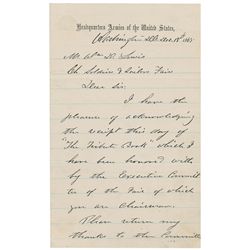 Headquarters Armies of the United States,
Washington, D.C. Dec. 18th 1865
Mr. Wm. H. Lewis
Ch. Soldiers & Sailors Fair
Dear Sir:
I have the
pleasure of acknowledging
the receipt this day of
"The Tribute Book" which I
have been honored with
by the Executive Committ-
ee of the Fair of which
you are Chairman.
Please return my
thanks to the Committee